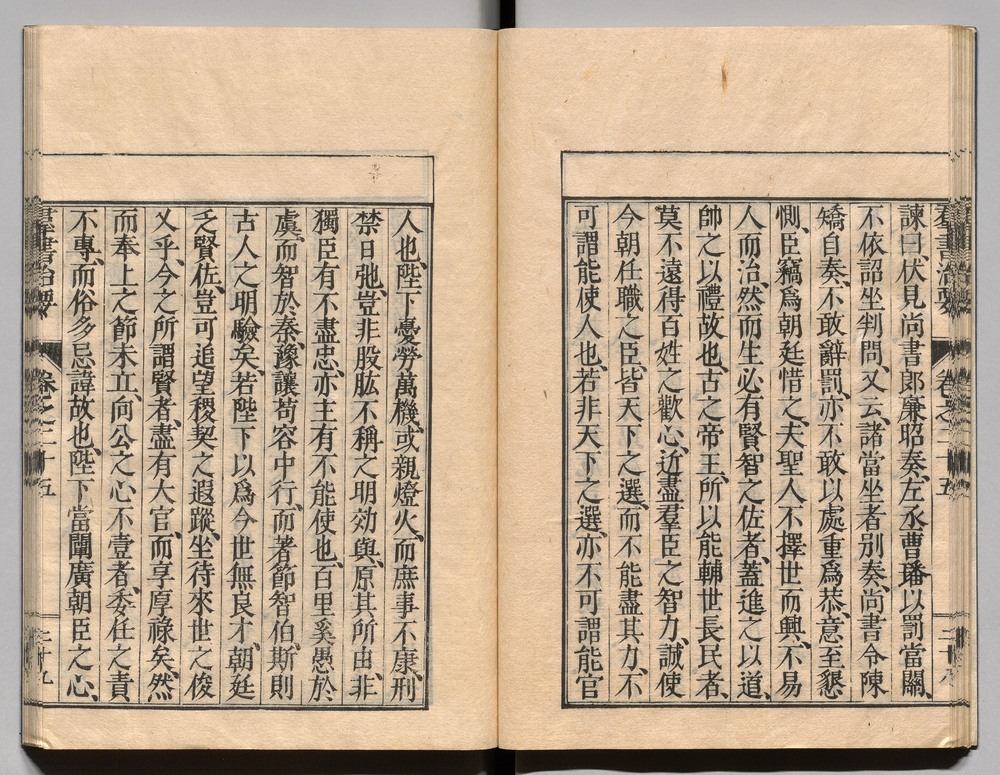 羣書治要 卷之二十五 二十八
諫曰、伏見尚書郎廉昭奏、左丞曹璠以罰當關、
不依詔坐判問、又云、諸當坐者別奏、尚書令陳
矯自奏、不敢辭罰、亦不敢以處重爲恭、意至懇
惻、臣竊爲朝廷惜之、夫聖人不擇世而興、不易
人而治、然而生必有賢智之佐者、蓋進之以道、
帥之以禮故也、古之帝王、所以能輔世長民者、
莫不遠得百姓之歡心、近盡羣臣之智力、誠使
今朝任職之臣、皆天下之選、而不能盡其力、不
可謂能使人也、若非天下之選、亦不可謂能官
人也、陛下憂勞萬機、或親燈火、而庶事不康、刑
禁日弛、豈非股肱不稱之明効與、原其所由、非
獨臣有不盡忠、亦主有不能使也、百里奚愚於
虞、而智於秦、豫讓苟容中行、而著節智伯、斯則
古人之明驗矣、若陛下以爲今世無良才、朝廷
乏賢佐、豈可追望稷契之遐蹤、坐待來世之俊
乂乎、今之所謂賢者、盡有大官、而享厚祿矣、然
而奉上之節未立、向公之心不壹者、委任之責
不專、而俗多忌諱故也、陛下當闡廣朝臣之心、
羣書治要 卷之二十五 二十九